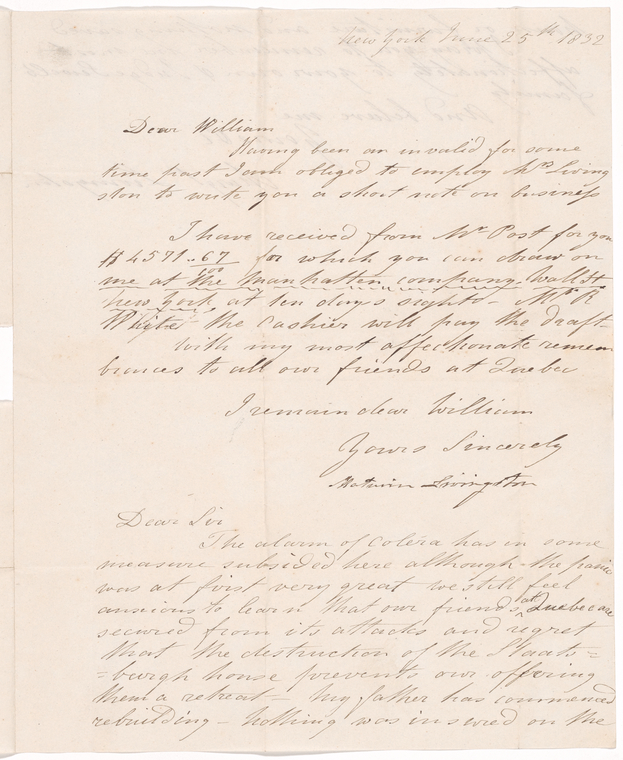 New York June 25th 1832
Dear William
Having been an invalid for some
time past I am obliged to employ Mrs Living
ston to write you a short note on business
I have received from Mr Post for you
$4571..67/100 for which you can draw on
me at the Manhatten company Wall St
New York, at ten days sights - Mr R
White - the Cashier will pay the draft -
with my most affectionate remem
brances to all our friends at Quebec
I remain dear William
Yours Sincerely
Maturin Livingston
Dear Sir
The alarm of Coléra has in some
measure subsided here although the panic
was at first very great we still feel
anxious to learn that our friends at Quebec are
secured from its attacks and regret
that the destruction of the Staats=
=burgh house prevents our offering
them a retreat - My father has commenced
rebuilding - nothing was insured on the